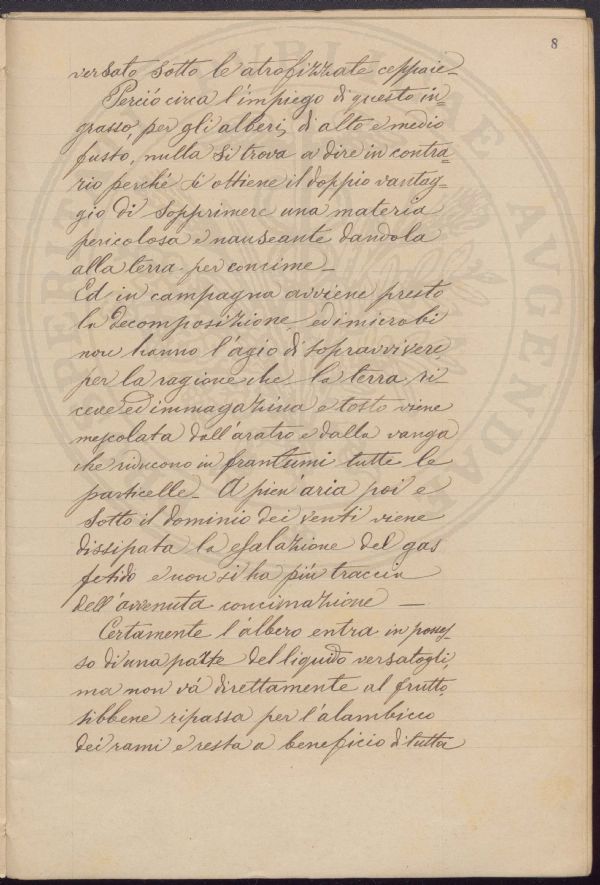 8
versato sotto le atrofizzate ceppaie_
Perciò circa l'impiego di questo in=
grasso, per gli alberi, di alto e medio
fusto, nulla si trova a dire in contra=
rio perché si ottiene il doppio vantag=
gio di sopprimere una materia
pericolosa e nauseante dandola
alla terra per concime_
Ed in campagna avviene presto
la decomposizione, ed i microbi
non hanno l'agio di sopravvivere,
per la ragione che la terra ri-
ceve ed immagazzina e tosto viene
mescolata dall'aratro e dalla vanga
che riducono in frantumi tutte le
particelle_ A pien'aria poi e
sotto il dominio dei venti viene
dissipata la esalazione del gas
fetido e non si ha più traccia
dell'avvenuta concimazione _
Certamente l'albero entra in posses-
so di una parte del liquido versatogli,
ma non và direttamente al frutto,
sibbene ripassa per l'alambicco
dei rami e resta a beneficio di tutta